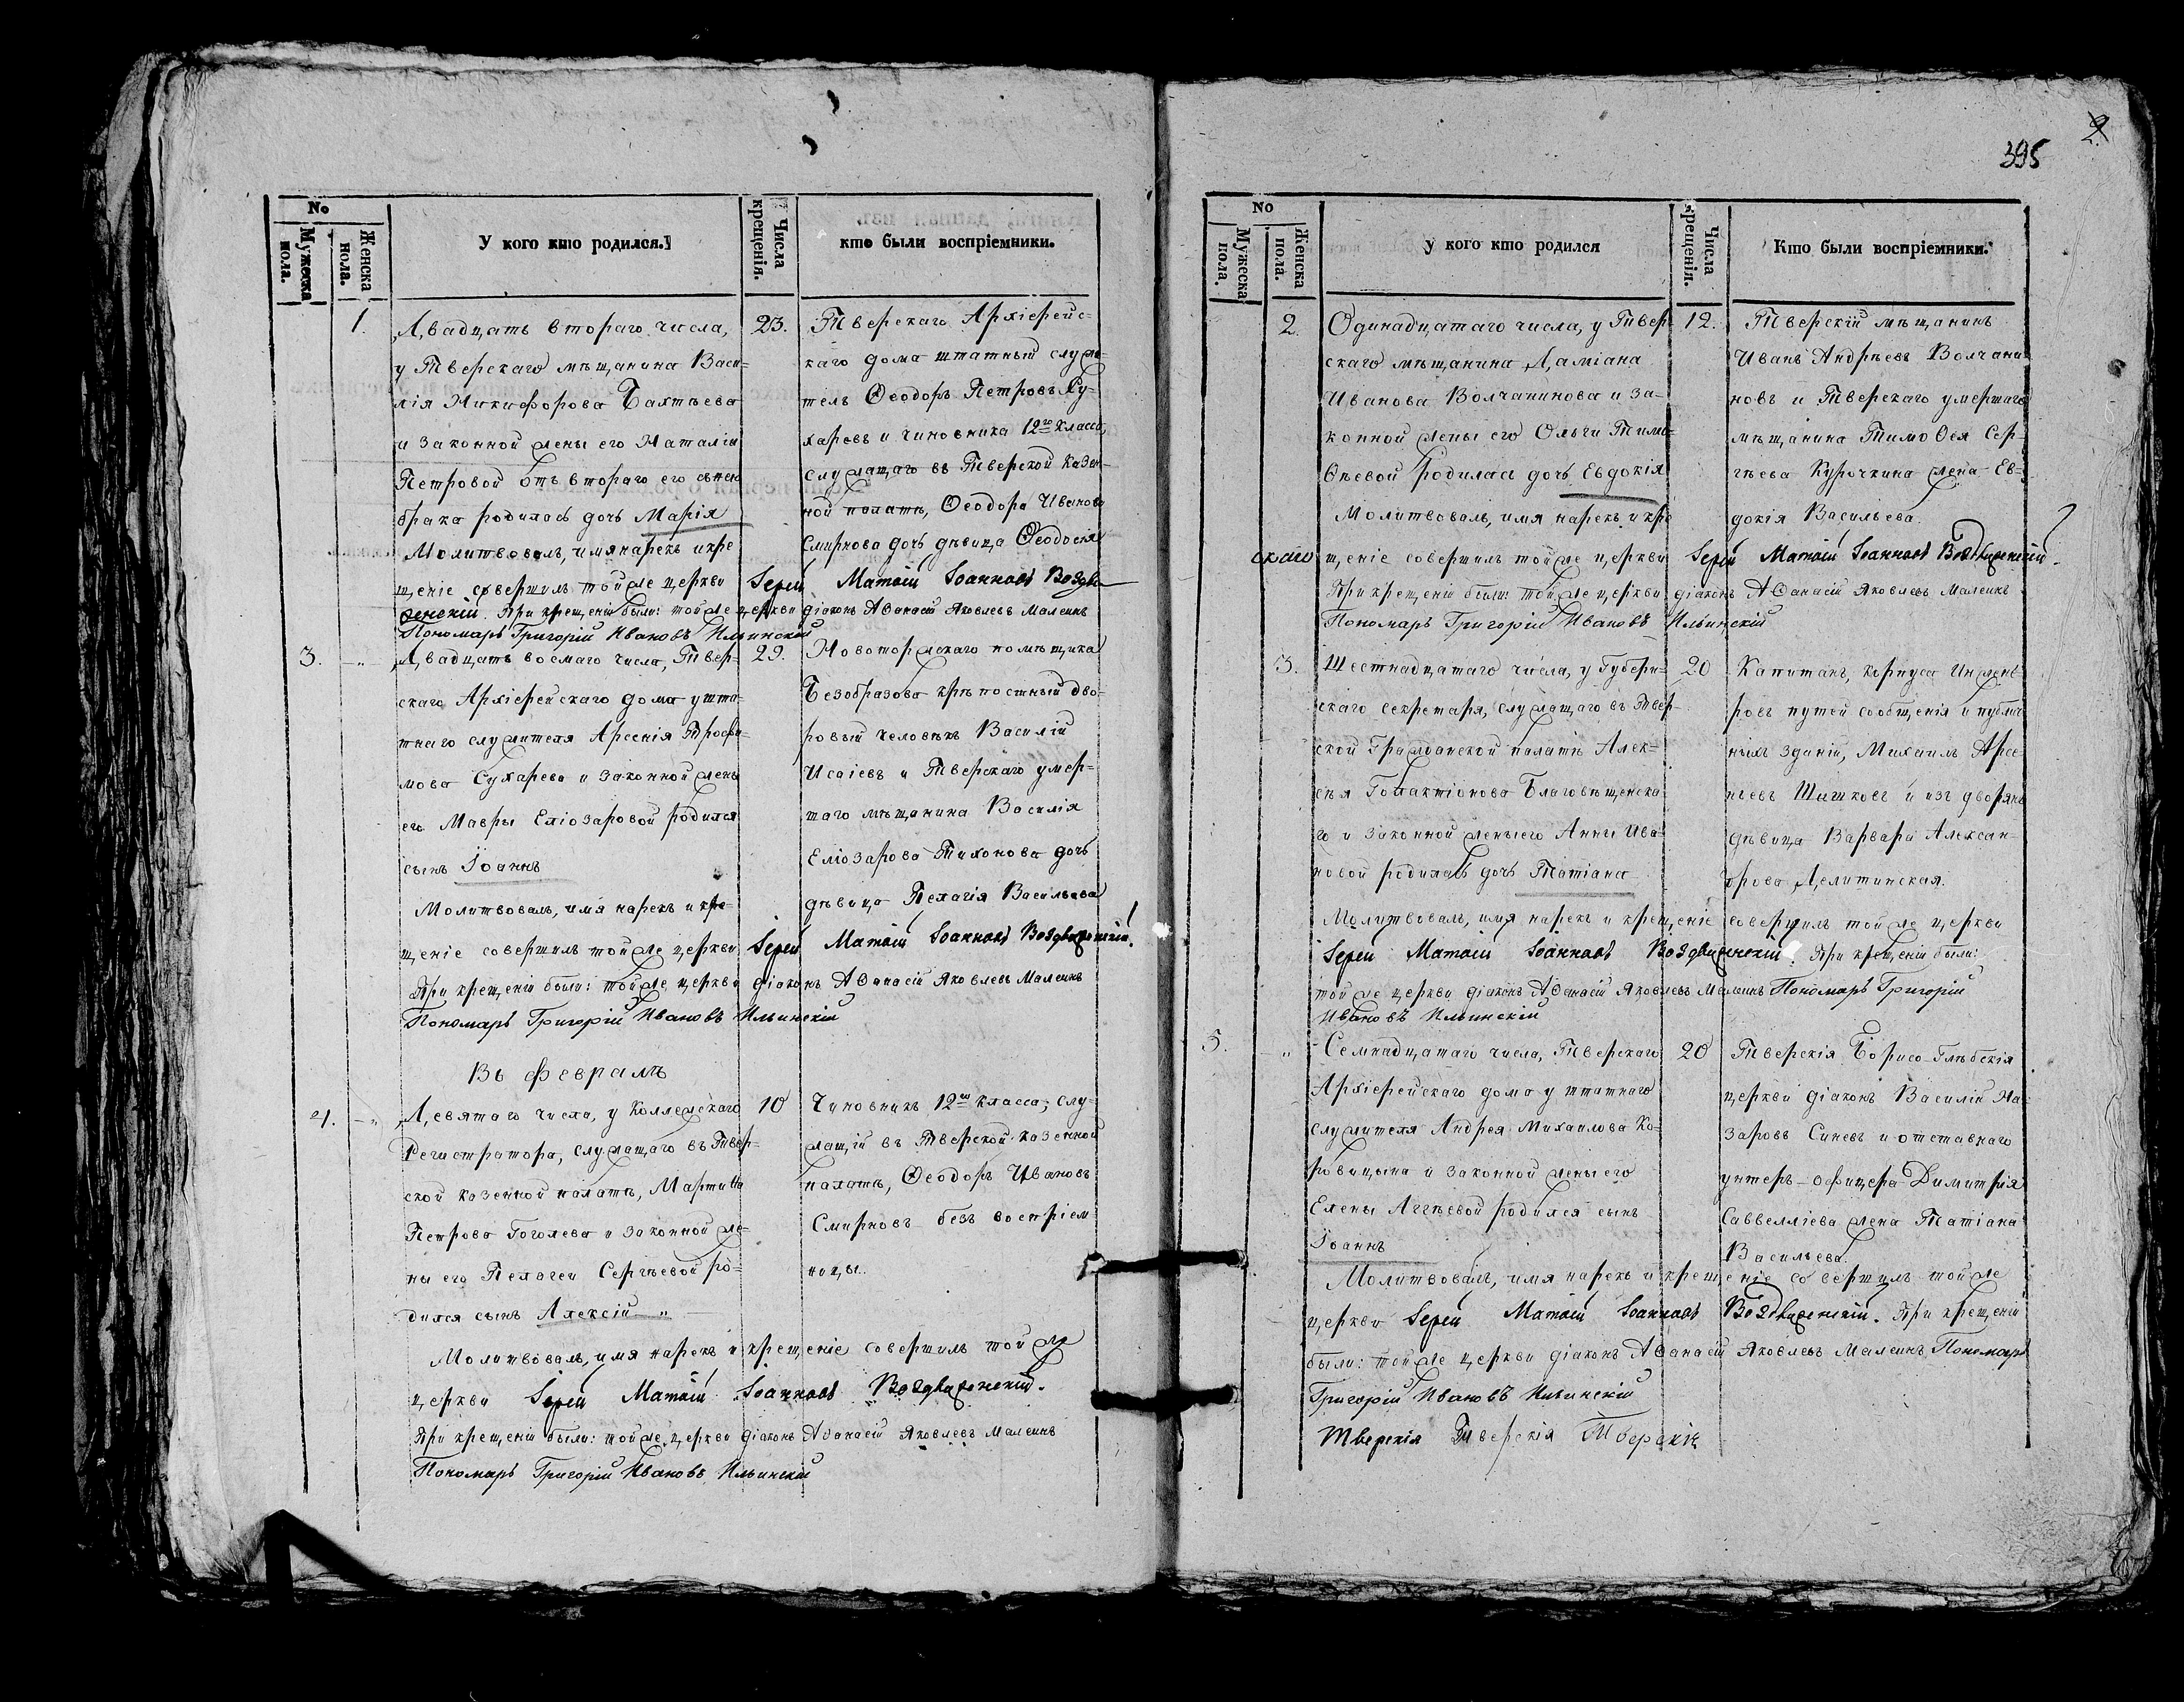 No
Мужеска пола.
Женска пола.
У кого кто родился.
Числа крещенія.
кто были воспріемники.
1.
Двадцать втораго числа,
у Тверскаго мѣщанина Васи=
лія Никифорова Бахтѣева
и законной жены его Наталіи
Петровой отъ втораго его съ нею
брака родилась дочь Марія
23.
Тверскаго Архіерейс=
каго дома штатный служи=
тель Ѳеодоръ Петровъ Су=
харевъ и чиновника 12го класса,
служащаго въ Тверской Казен=
ной палатѣ, Ѳеодора Иванова
Смирнова дочь дѣвица Ѳеодосія
Молитвовалъ, имя нарекъ и кре
щеніе совершилъ той же церкви Іерей Матѳій Іоанновъ Воздви
женскій. При крещеніи были: той же церкви діаконъ Аѳанасій Яковлевъ Малеинъ
Пономарь Григорій Ивановъ Ильинскій
3.
Двадцать восмаго числа, Твер=
скаго Архіерейскаго дома у шта=
тнаго служителя Арсенія Трофи=
мова Сухарева и законной жены
его Мавры Еліозаровой родился
сынъ Іоаннъ
29.
Новоторжскаго помѣщика
Безобразова крѣпостный дво=
ровый человѣкъ Василій
Исаіевъ и Тверскаго умер=
таго мѣщанина Василія
Еліозарова Тихонова дочь
дѣвица Пелагія Васильева
Молитвовалъ, имя нарекъ и кре=
щеніе совершилъ той же церкви Іерей Матѳій Іоанновъ Воздвиженскій.
При крещеніи были: той же церкви діаконъ Аѳанасій Яковлевъ Малеинъ
Пономарь Григорій Ивановъ Ильинскій
Въ Февралѣ
4.
Девятаго числа, у Коллежскаго
Регистратора, служащаго въ Твер=
ской казенной палатѣ, Мартина
Петрова Гоголева и законной же=
ны его Пелагеи Сергѣевой ро=
дился сынъ Алексій
10
Чиновникъ 12го класса, слу=
жащій въ Тверской казенной
палатѣ, Ѳеодоръ Ивановъ
Смирновъ безъ воспріем
ницы.
Молитвовалъ, имя нарекъ и крещеніе совершилъ той же
церкви Іерей Матѳій Іоанновъ Воздвиженскій.
При крещеніи были: той же церкви діаконъ Аѳанасій Яковлевъ Малеинъ
Пономарь Григорій Ивановъ Ильинскій
2
395
No
Мужеска пола.
Женска пола.
У кого кто родился
Числа крещенія.
Кто были воспріемники.
2.
Одинадцатаго числа, у Твер=
скаго мѣщанина Даміана
Иванова Волчанинова и за=
конной жены его Ольги Тимо=
ѳѣевой родилась дочь Евдокія
12.
Тверскій мѣщанинъ
Иванъ Андрѣевъ Волчани
новъ и Тверскаго умершаго
мѣщанина Тимоѳея Сер=
гѣева Курочкина жена Ев=
докія Васильева.
Молитвовалъ, имя нарекъ и кре
скаго щеніе совершилъ той же церкви Іерей Матѳій Іоанновъ Воздвиженскій.
При крещеніи были: той же церкви діаконъ Аѳанасій Яковлевъ Малеинъ
Пономарь Григорій Ивановъ Ильинскій
3.
Шестнадцатаго числа, у Губерн=
скаго секретаря, служащаго въ Твер=
ской Гражданской палатѣ Алек=
сѣя Галактіонова Благовѣщенска
го и законной жены его Анны Ива=
новой родилась дочь Татіана
20
Капитанъ, корпуса Инжене=
ровъ путей сообщенія и публич
ныхъ зданій, Михаилъ Арсе
ньевъ Шишковъ и изъ дворянъ
дѣвица Варвара Алексан=
дрова Делитинская.
Молитвовалъ, имя нарекъ и крещеніе совершилъ той же церкви
Іерей Матѳій Іоанновъ Воздвиженскій. При крещеніи были:
той же церкви діаконъ Аѳанасій Яковлевъ Малеинъ Пономарь Григорій
Ивановъ Ильинскій
5.
Семнадцатаго числа, Тверскаго
Архіерейскаго дома у штатнаго
служителя Андрея Михаилова Ко=
ровицына и законной жены его
Елены Аггѣевой родился сынъ
Іоаннъ
20
Тверскія Борисо-Глѣбскія
церкви діаконъ Василій На=
заровъ Синевъ и отставнаго
унтеръ-офицера Димитрія
Саввелліева жена Татіана
Васильева.
Молитвовалъ, имя нарекъ и крещеніе совершилъ той же
церкви Іерей Матѳій Іоанновъ Воздвиженскій. При крещеніи
были: той же церкви діаконъ Аѳанасій Яковлевъ Малеинъ Пономарь
Григорій Ивановъ Ильинскій
Тверскія Тверскія Тверскія